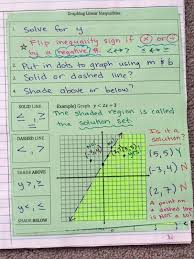 Graphing Linear Inequalities
1. Solve for y
☆ Flip inequality sign if (×) or (÷)
by a negative #. < ↔ > ≤ ↔ ≥
2. Put in dots to graph using m & b
3. Solid or dashed line?
4. Shade above or below?
SOLID LINE
≤, ≥
DASHED LINE
<, >
SHADE ABOVE
y >, ≥
y <, ≤
SHADE BELOW
Example) Graph y < 2x + 3
The shaded region is called
the solution set.
Is it a
solution?
(5,5) Y
(-3,4) N
(2,7) N
A point on
a dashed line
is NOT a sol.